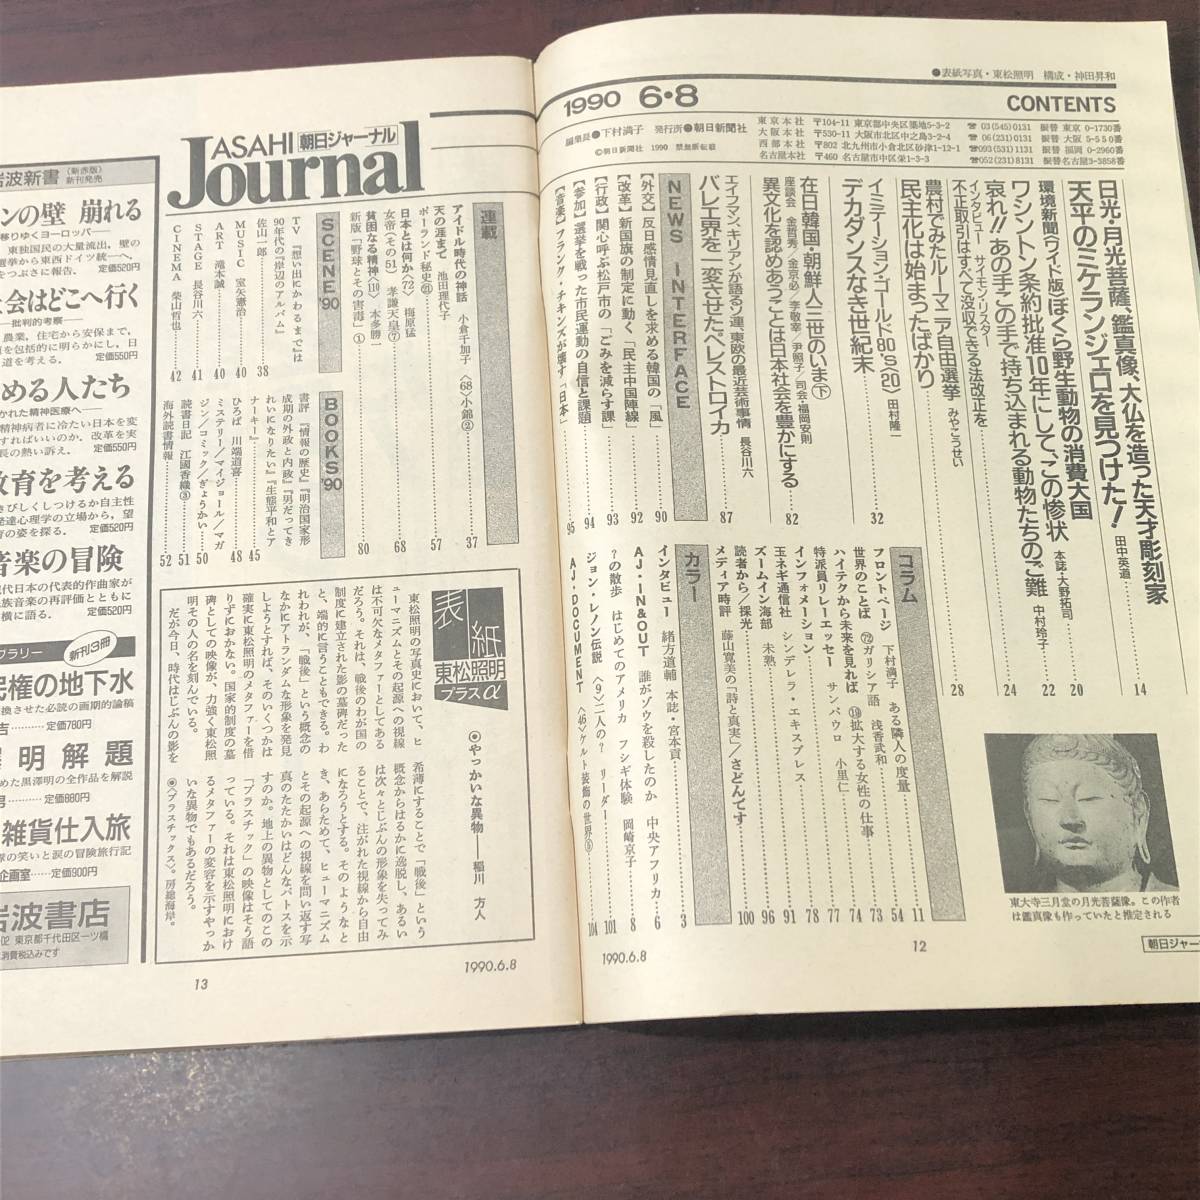 ●表紙写真・東松照明 構成・神田昇和
1990 6・8
CONTENTS
編集長●下村満子 発行所●朝日新聞社
©朝日新聞社 1990 無断転載
東京本社 〒104-11 東京都中央区築地5-3-2 ☎03(545)0131 振替 東京 0-1730番
大阪本社 〒530-11 大阪市北区中之島3-2-4 ☎06(231)0131 振替 大阪 5-550番
西部本社 〒802 北九州市小倉北区砂津1-12-1 ☎093(531)1131 振替 福岡 0-2960番
名古屋本社 〒460 名古屋市中区栄1-3-3 ☎052(231)8131 振替 名古屋3-3858番
日光・月光菩薩、鑑真像、大仏を造った天才彫刻家
天平のミケランジェロを見つけた! 田中英道 14
環境新聞〈ワイド版〉ぼくら野生動物の消費大国
ワシントン条約批准10年にして、この惨状 本誌・大野拓司 20
哀れ!! あの手この手で持ち込まれる動物たちのご難 中村玲子 22
インタビュー サイモン・リスター
不正取引はすべて没収できる法改正を 24
農村でみたルーマニア自由選挙
民主化は始まったばかり みやこうせい 28
イミテーション・ゴールド80's〈20〉 田村隆一
デカダンスなき世紀末 32
在日韓国・朝鮮人三世のいま㊦
座談会 金哲秀/金京必/李敬宰/尹照子/司会・福岡安則
異文化を認めあうことは日本社会を豊かにする 82
エイフマン、キリアンが語るソ連、東欧の最近芸術事情 長谷川六
バレエ界を一変させたペレストロイカ 87
NEWS INTERFACE
【外交】反日感情見直しを求める韓国の「風」 90
【改革】新国旗の制定に動く「民主中国陣線」 92
【行政】関心呼ぶ松戸市の「ごみを減らす課」 93
【参加】選挙を戦った市民運動の自信と課題 94
【音楽】フランク・チキンズが壊す「日本」 95
コラム
フロントページ 下村満子 ある隣人の度量 11
世界のことば 72 ガリシア語 浅香武和 54
ハイテクから未来を見れば ⑲拡大する女性の仕事 73
特派員リレーエッセー サンパウロ 小里仁 74
インフォメーション 77
玉ネギ通信社 シンデレラ・エキスプレス 78
ズームイン海部 未熟 91
読者から/採光 96
メディア時評 藤山寛美の「詩と真実」/さどんです 100
カラー
インタビュー 緒方道輔 本誌・宮本貢 3
AJ・IN&OUT 誰がゾウを殺したのか 中央アフリカ 6
?の散歩 はじめてのアメリカ フシギ体験 岡崎京子 8
ジョン・レノン伝説〈9〉二人の? リーダー 101
AJ・DOCUMENT〈46〉ケルト装飾の世界⑨ 104
東大寺三月堂の月光菩薩像。この作者
は鑑真像も作っていたと推定される
12
1990.6.8
朝日ジャー
ASAHI 朝日ジャーナル
Journal
連載
アイドル時代の神話 小倉千加子〈68〉小錦② 37
天の涯まで 池田理代子
ポーランド秘史㉑ 57
日本とは何か〈72〉 梅原猛
女帝(その51) 孝謙天皇⑦ 68
貧困なる精神〈110〉 本多勝一
新版「野球とその害毒」① 80
SCENE '90
TV 『想い出にかわるまで』は
90年代の『岸辺のアルバム』
佐山一郎 38
MUSIC 室矢憲治 40
ART 滝本誠 40
STAGE 長谷川六 41
CINEMA 柴山哲也 42
BOOKS '90
書評 『情報の歴史』『明治国家形
成期の外政と内政』『男だってき
れいになりたい』『生態平和とア
ナーキー』 45
ひろば 川端道喜 48
ミステリー/マイジョール/マガ
ジン/コミック/ぎょうかい 50
読書日記 江國香織③ 51
海外読書情報 52
表紙
東松照明
プラスα
◉やっかいな異物——稲川 方人
東松照明の写真史において、ヒ
ューマニズムとその起源への視線
は不可欠なメタファーとしてある
だろう。それは、戦後のわが国の
制度に建立された影の墓碑だった
と、端的に言うこともできる。わ
れわれが、「戦後」という概念の
なかにアトランダムな形象を発見
しようとすれば、そのいくつかは
確実に東松照明のメタファーを借
りずにおかない。国家的制度の墓
碑としての映像が、力強く東松照
明その人の名を刻んでいる。
だが今日、時代はじぶんの影を
希薄にすることで「戦後」という
概念からはるかに逸脱し、あるい
は次々とじぶんの形象を失ってみ
ることで、注がれた視線から自由
になろうとする。そのようなと
き、あらためて、ヒューマニズム
とその起源への視線を問い返す写
真のたたかいはどんなパトスを示
すのか。地上の異物としてのこの
「プラスチック」の映像はそう語
っている。それは東松照明におけ
るメタファーの変容を示すやっか
いな異物でもあるだろう。
◉〈プラスチックス〉。房総海岸。
1990.6.8
13
岩波新書 (新赤版) 新刊発売
ンの壁 崩れる
移りゆくヨーロッパ——
東独国民の大量流出、壁の
選挙から東西ドイツ統一へ。
をつぶさに報告。 定価520円
会はどこへ行く
——批判的考察——
農業、住宅から安保まで、
題を包括的に明らかにし、日
道を考える。 定価550円
める人たち
かれた精神医療へ——
精神病者に冷たい日本を変
すればいいのか。改革を実
長の熱い訴え。 定価550円
教育を考える
きびしくしつけるか自主性
発達心理学の立場から、望
育の姿を探る。 定価520円
音楽の冒険
現代日本の代表的作曲家が
民族音楽の再評価とともに
横に語る。 定価520円
ブラリー 新刊3冊
民権の地下水
換させた必読の画期的論稿
吉………定価780円
明解題
めた黒澤明の全作品を解説
男………定価880円
雑貨仕入旅
豚の笑いと涙の冒険旅行記
企画室……定価900円
岩波書店
02 東京都千代田区一ツ橋
消費税込みです